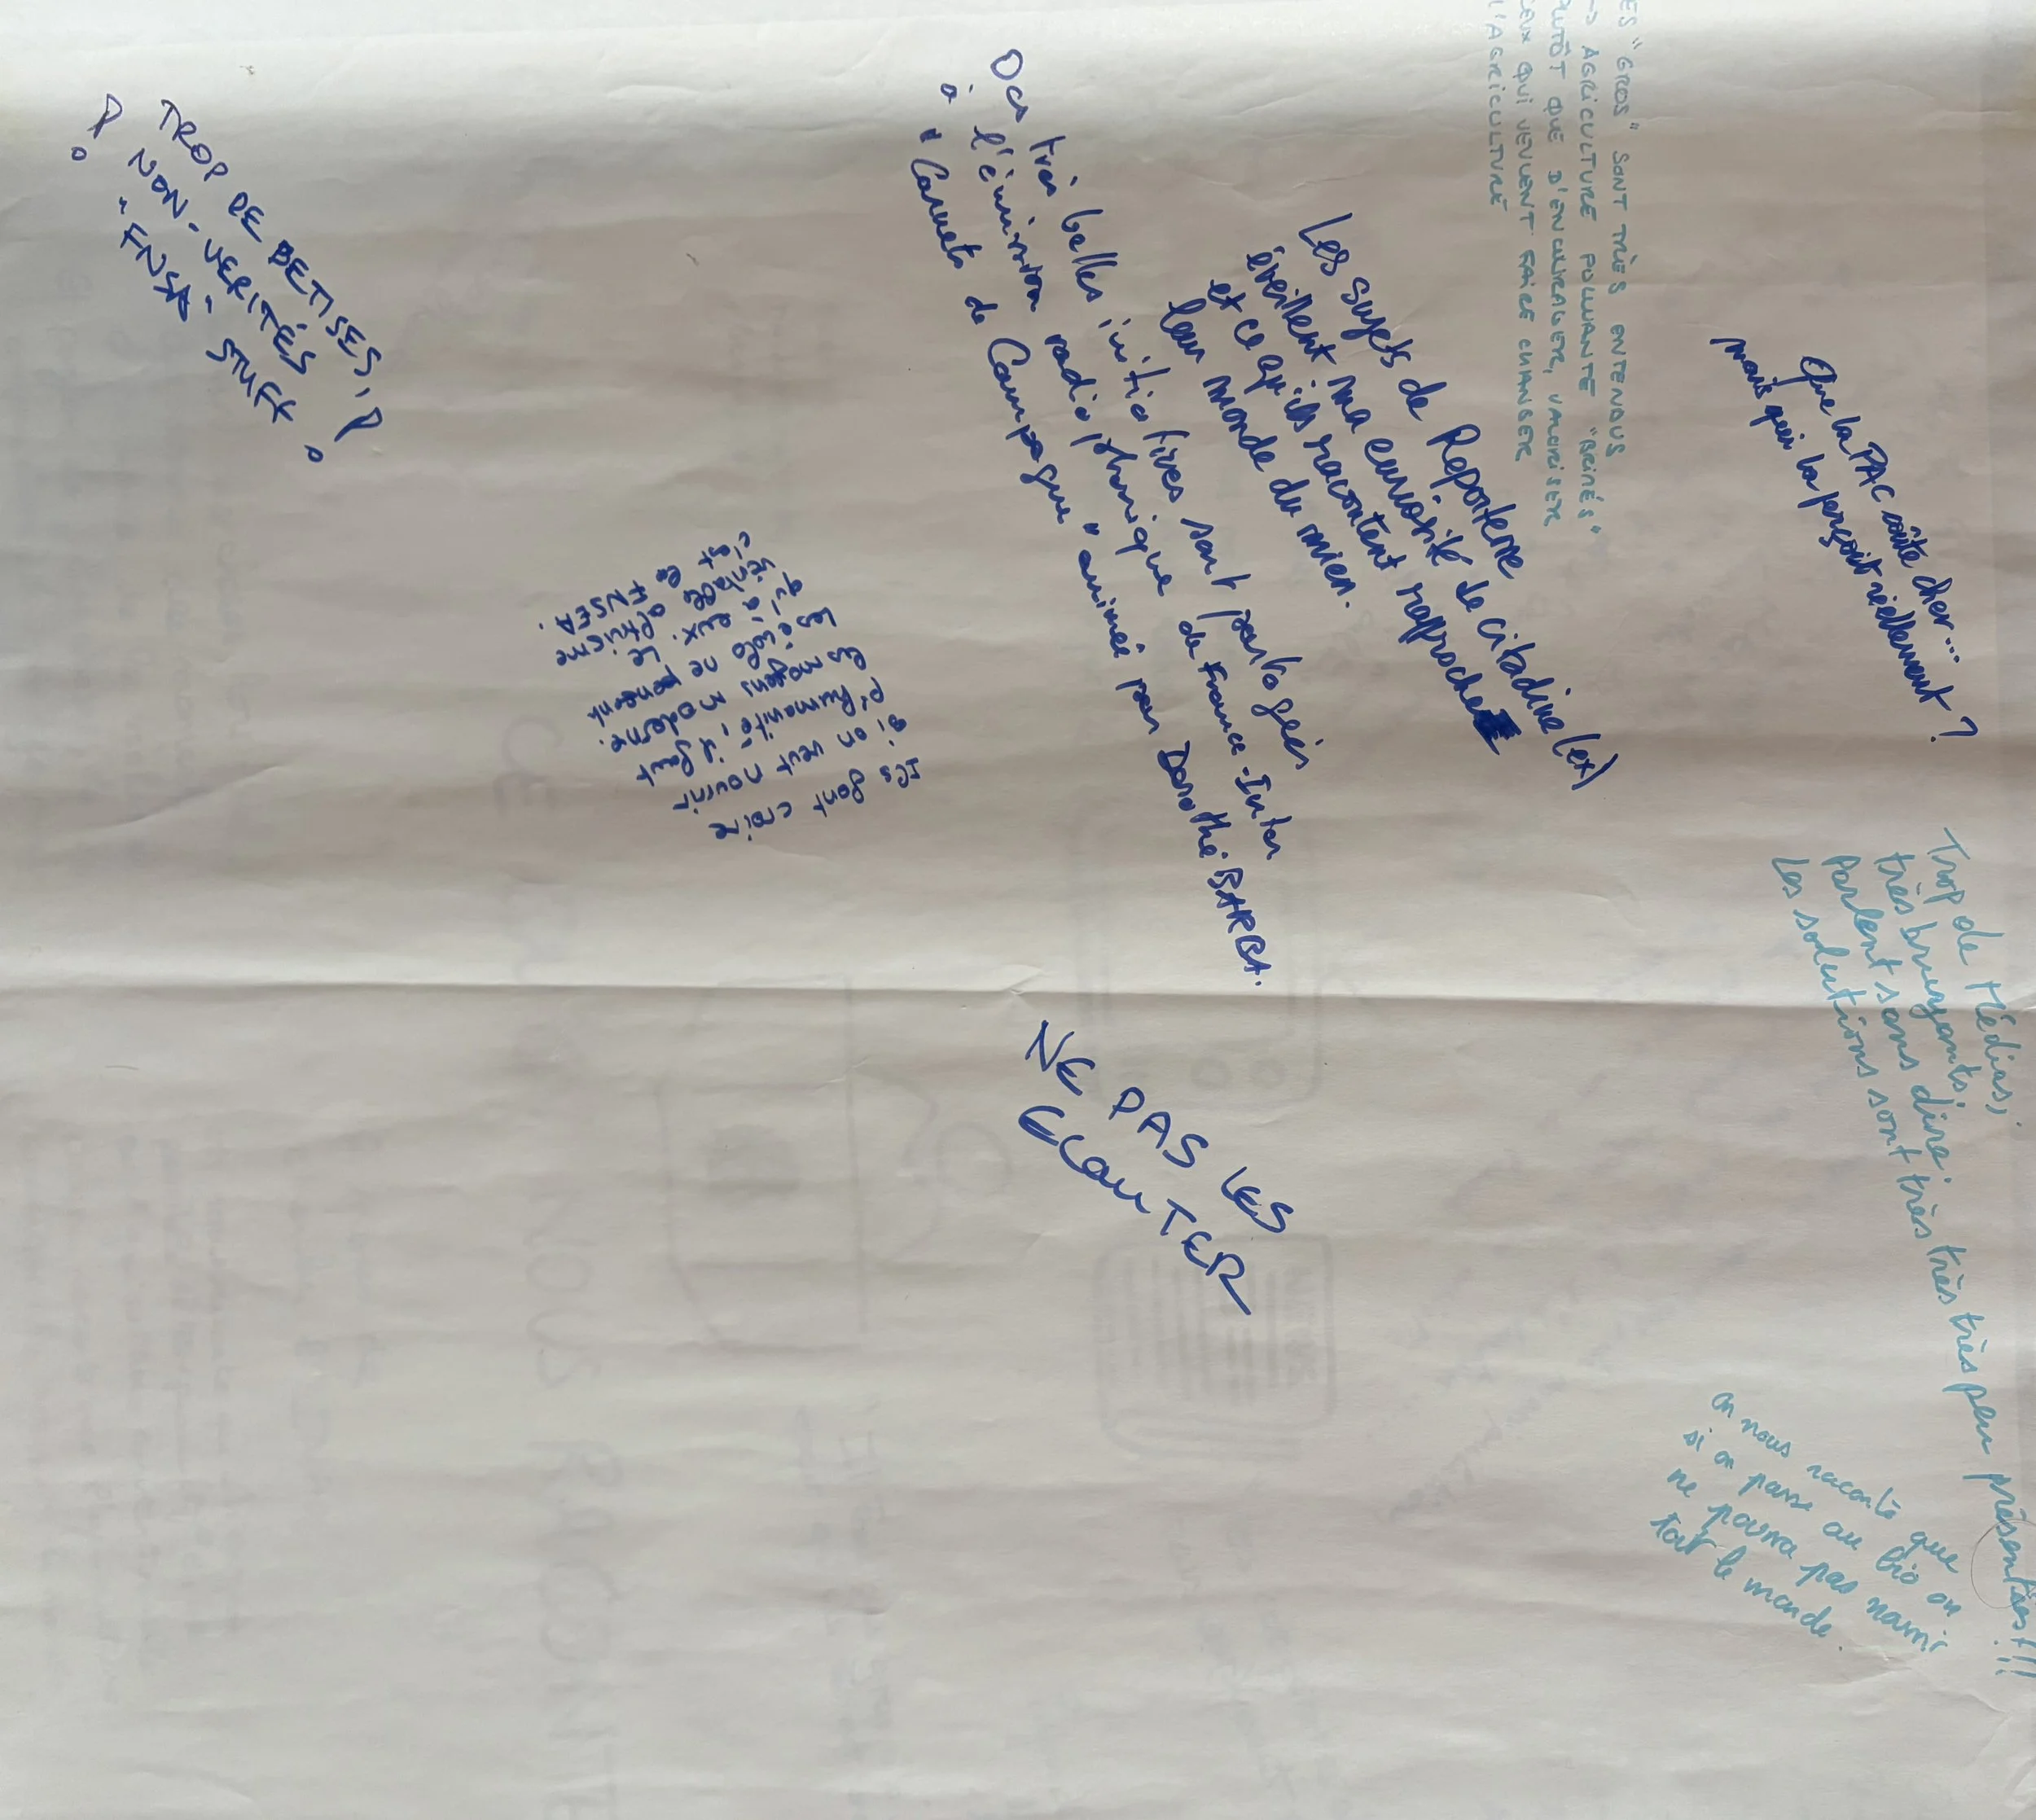 ES "GROS" SONT TRÈS ENTENDUS
-> AGRICULTURE POLLUANTE "BRIMÉS"
PLUTÔT QUE D'ENCOURAGER, VALORISER
CEUX QUI VEULENT FAIRE CHANGER
L'AGRICULTURE
Que la PAC coûte cher...
mais qui la perçoit réellement ?
Les sujets de Reporterre
éveillent ma curiosité de citadine (ex)
et ce qu'ils racontent rapproche
leur monde du mien.
Des très belles initiatives sont partagées
à l'émission radiophonique de France-Inter
"Carnets de Campagne" animée par Dorothé BARBA.
TROP DE BETISES, !
NON-VERITÉS
! "FNSA" STUFF
Ils font croire
si on veut nourrir
l'humanité, il faut
les moyens moderne.
Les écolo ne pensent
qu'à eux. Le
véritable altruisme
c'est la FNSEA.
Trop de Médias,
très bruyants,
Parlent sans dire.
Les solutions sont très très très peu présentées!!!
NE PAS LES
ECOUTER
on nous raconte que
si on passe au bio on
ne pourra pas nourrir
tout le monde.